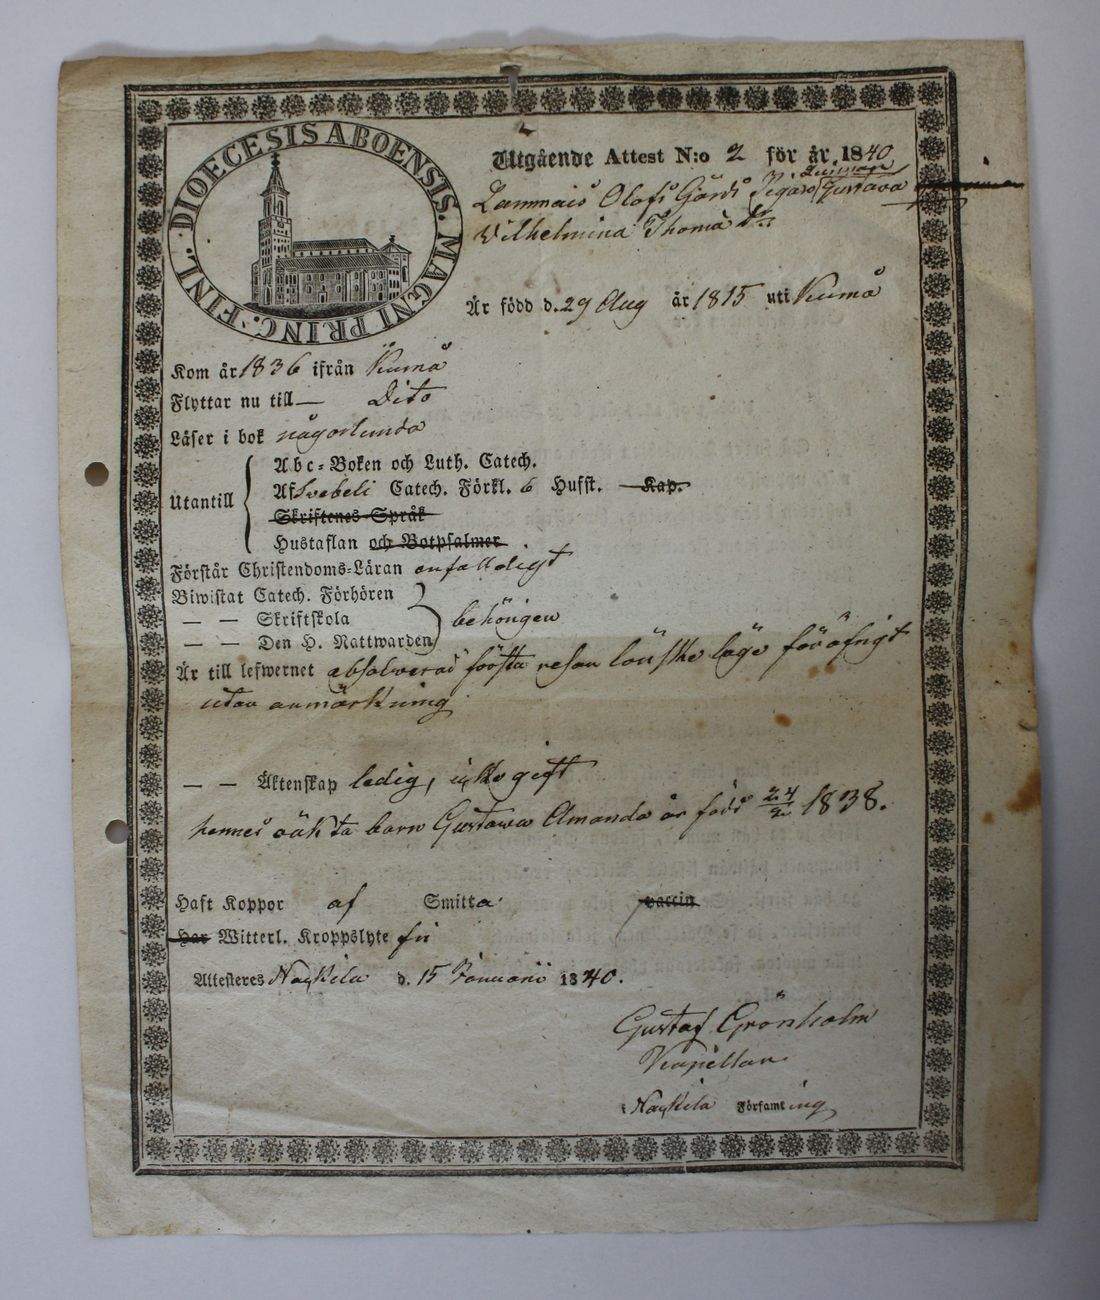 DIOECESIS ABOENSIS. MAGNI PRINC: FINL.
Utgående Attest N:o 2 för år 1840
Lammais Olofs Gårds Pigan Gustava
Vilhelmina Thoma dr
Är född d. 29 Aug år 1815 uti Kumå
Kom år 1836 ifrån Kumå
Flyttar nu till — Dito
Läser i bok någorlunda
Utantill
Abc-Boken och Luth. Catech.
Af Svebeli Catech. Förkl. 6 Hufst. Kap.
Skriftenes Språk
Hustaflan och Botpsalmer
Förstår Christendoms-Läran enfalldigt
Biwistat Catech. Förhören
— — Skriftskola behörigen
— — Den H. Nattwarden
Är till lefwernet absolverad första resan lönske läge föröfrigt
utan anmärkning
— — Äktenskap ledig, icke gift
hennes oäkta barn Gustawa Amanda är född 24/2 1838.
Haft Koppor af Smitta vaccin
Har Witterl. Kroppslyte fri
Attesteras Nackila d. 15 Januarii 1840.
Gustaf Grönholm
Kapellan
i Nackila Församling